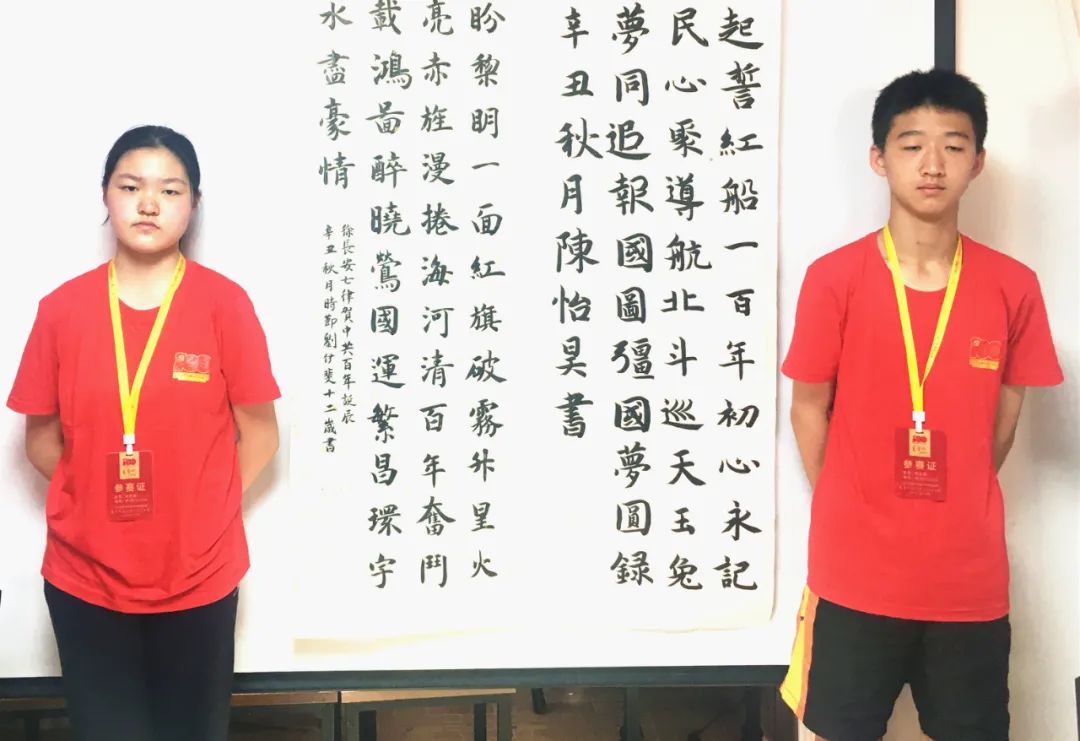 起誓紅船一百年初心永記
民心聚導航北斗巡天玉兔
夢同追報國圖彊國夢圓録
辛丑秋月陳怡昊書
盼黎明一面紅旗破霧升星火
亮赤旌漫捲海河清百年奮鬥
載鴻啚醉曉鶯國運繁昌環宇
水盡豪情
徐長安七律賀中共百年誕辰
辛丑秋月時節劉斐十二歲書
参赛证
参赛证